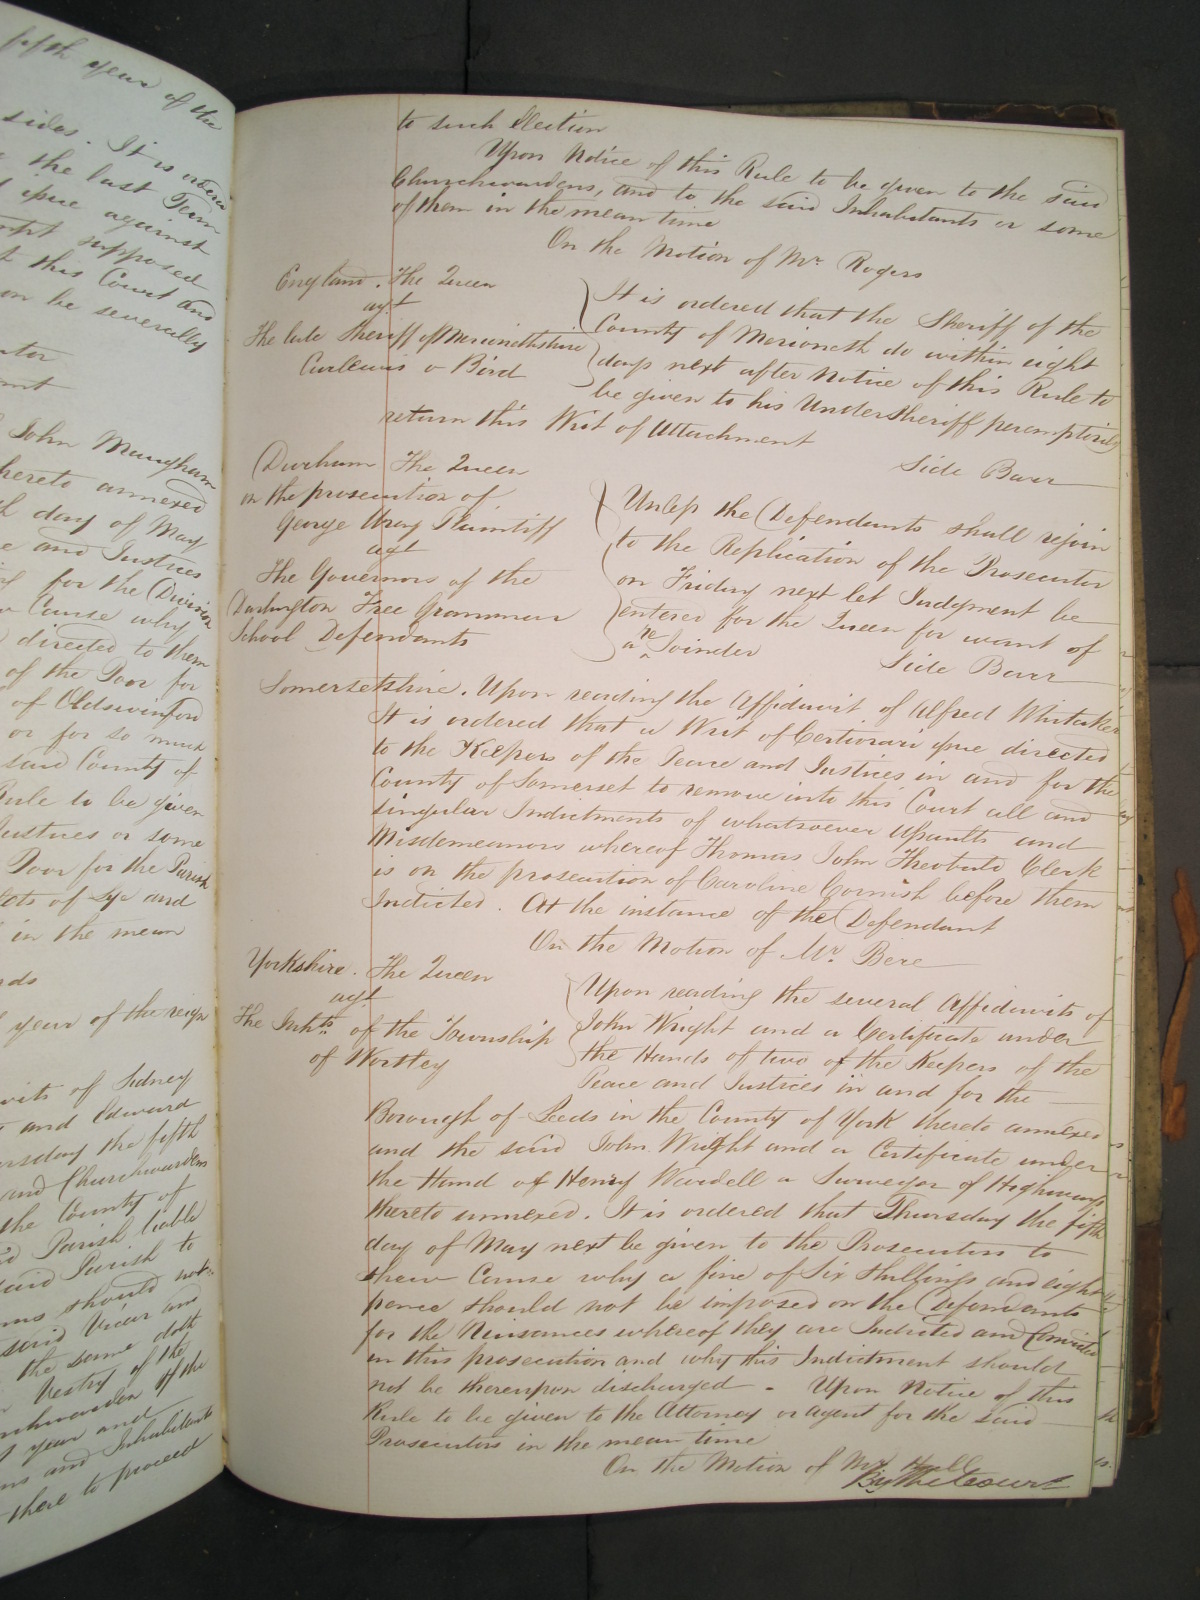 fifth year of the
sides. It is ordered
the last Term
issue against
supposed
this Court and
on be severally
John Maugham
hereto annexed
day of May
and Justices
for the Division
Cause why
directed to them
of the Poor for
of Oldswinford
or for so much
said County of
Rule to be given
Justices or some
Poor for the Parish
of Lye and
in the mean
year of the reign
of Sidney
and Edward
the fifth
and Churchwardens
the County of
Parish liable
said Parish to
should not
said Vicar and
the same doth
Vestry of the
of the
year and
and Inhabitants
there to proceed
to such Election
Upon Notice of this Rule to be given to the said
Churchwardens, and to the said Inhabitants or some
of them in the mean time
On the Motion of Mr. Rogers
England. The Queen
agt
The late Sheriff of Merionethshire
Curlewis v Bird
It is ordered that the Sheriff of the
County of Merioneth do within eight
days next after Notice of this Rule to
be given to his UnderSheriff peremptorily
return this Writ of Attachment
Side Barr
Durham The Queen
on the prosecution of
George Wray Plaintiff
agt
The Governors of the
Darlington Free Grammar
School Defendants
Unless the Defendants shall rejoin
to the Replication of the Prosecutor
on Friday next let Judgment be
entered for the Queen for want of
a re Joinder
Side Barr
Somersetshire. Upon reading the Affidavit of Alfred Whitaker
It is ordered that a Writ of Certiorari issue directed
to the Keepers of the Peace and Justices in and for the
County of Somerset to remove into this Court all and
singular Indictments of whatsoever Assaults and
Misdemeanors whereof Thomas John Theobald Clerk
is on the prosecution of Caroline Cornish before them
Indicted. At the instance of the Defendant
On the Motion of Mr. Bere
Yorkshire. The Queen
agt
The Inhts. of the Township
of Wortley
Upon reading the several Affidavits of
John Wright and a Certificate under
the Hands of two of the Keepers of the
Peace and Justices in and for the
Borough of Leeds in the County of York thereto annexed
and the said John Wright and a Certificate under
the Hand of Henry Wardell a Surveyor of Highways
thereto annexed. It is ordered that Thursday the fifth
day of May next be given to the Prosecutors to
shew Cause why a fine of Six shillings and eight
pence should not be imposed on the Defendants
for the Nuisances whereof they are Indicted and Convicted
in this prosecution and why this Indictment should
not be thereupon discharged - Upon Notice of this
Rule to be given to the Attorney or agent for the said
Prosecutors in the mean time
On the Motion of Mr. Hall
By the Court